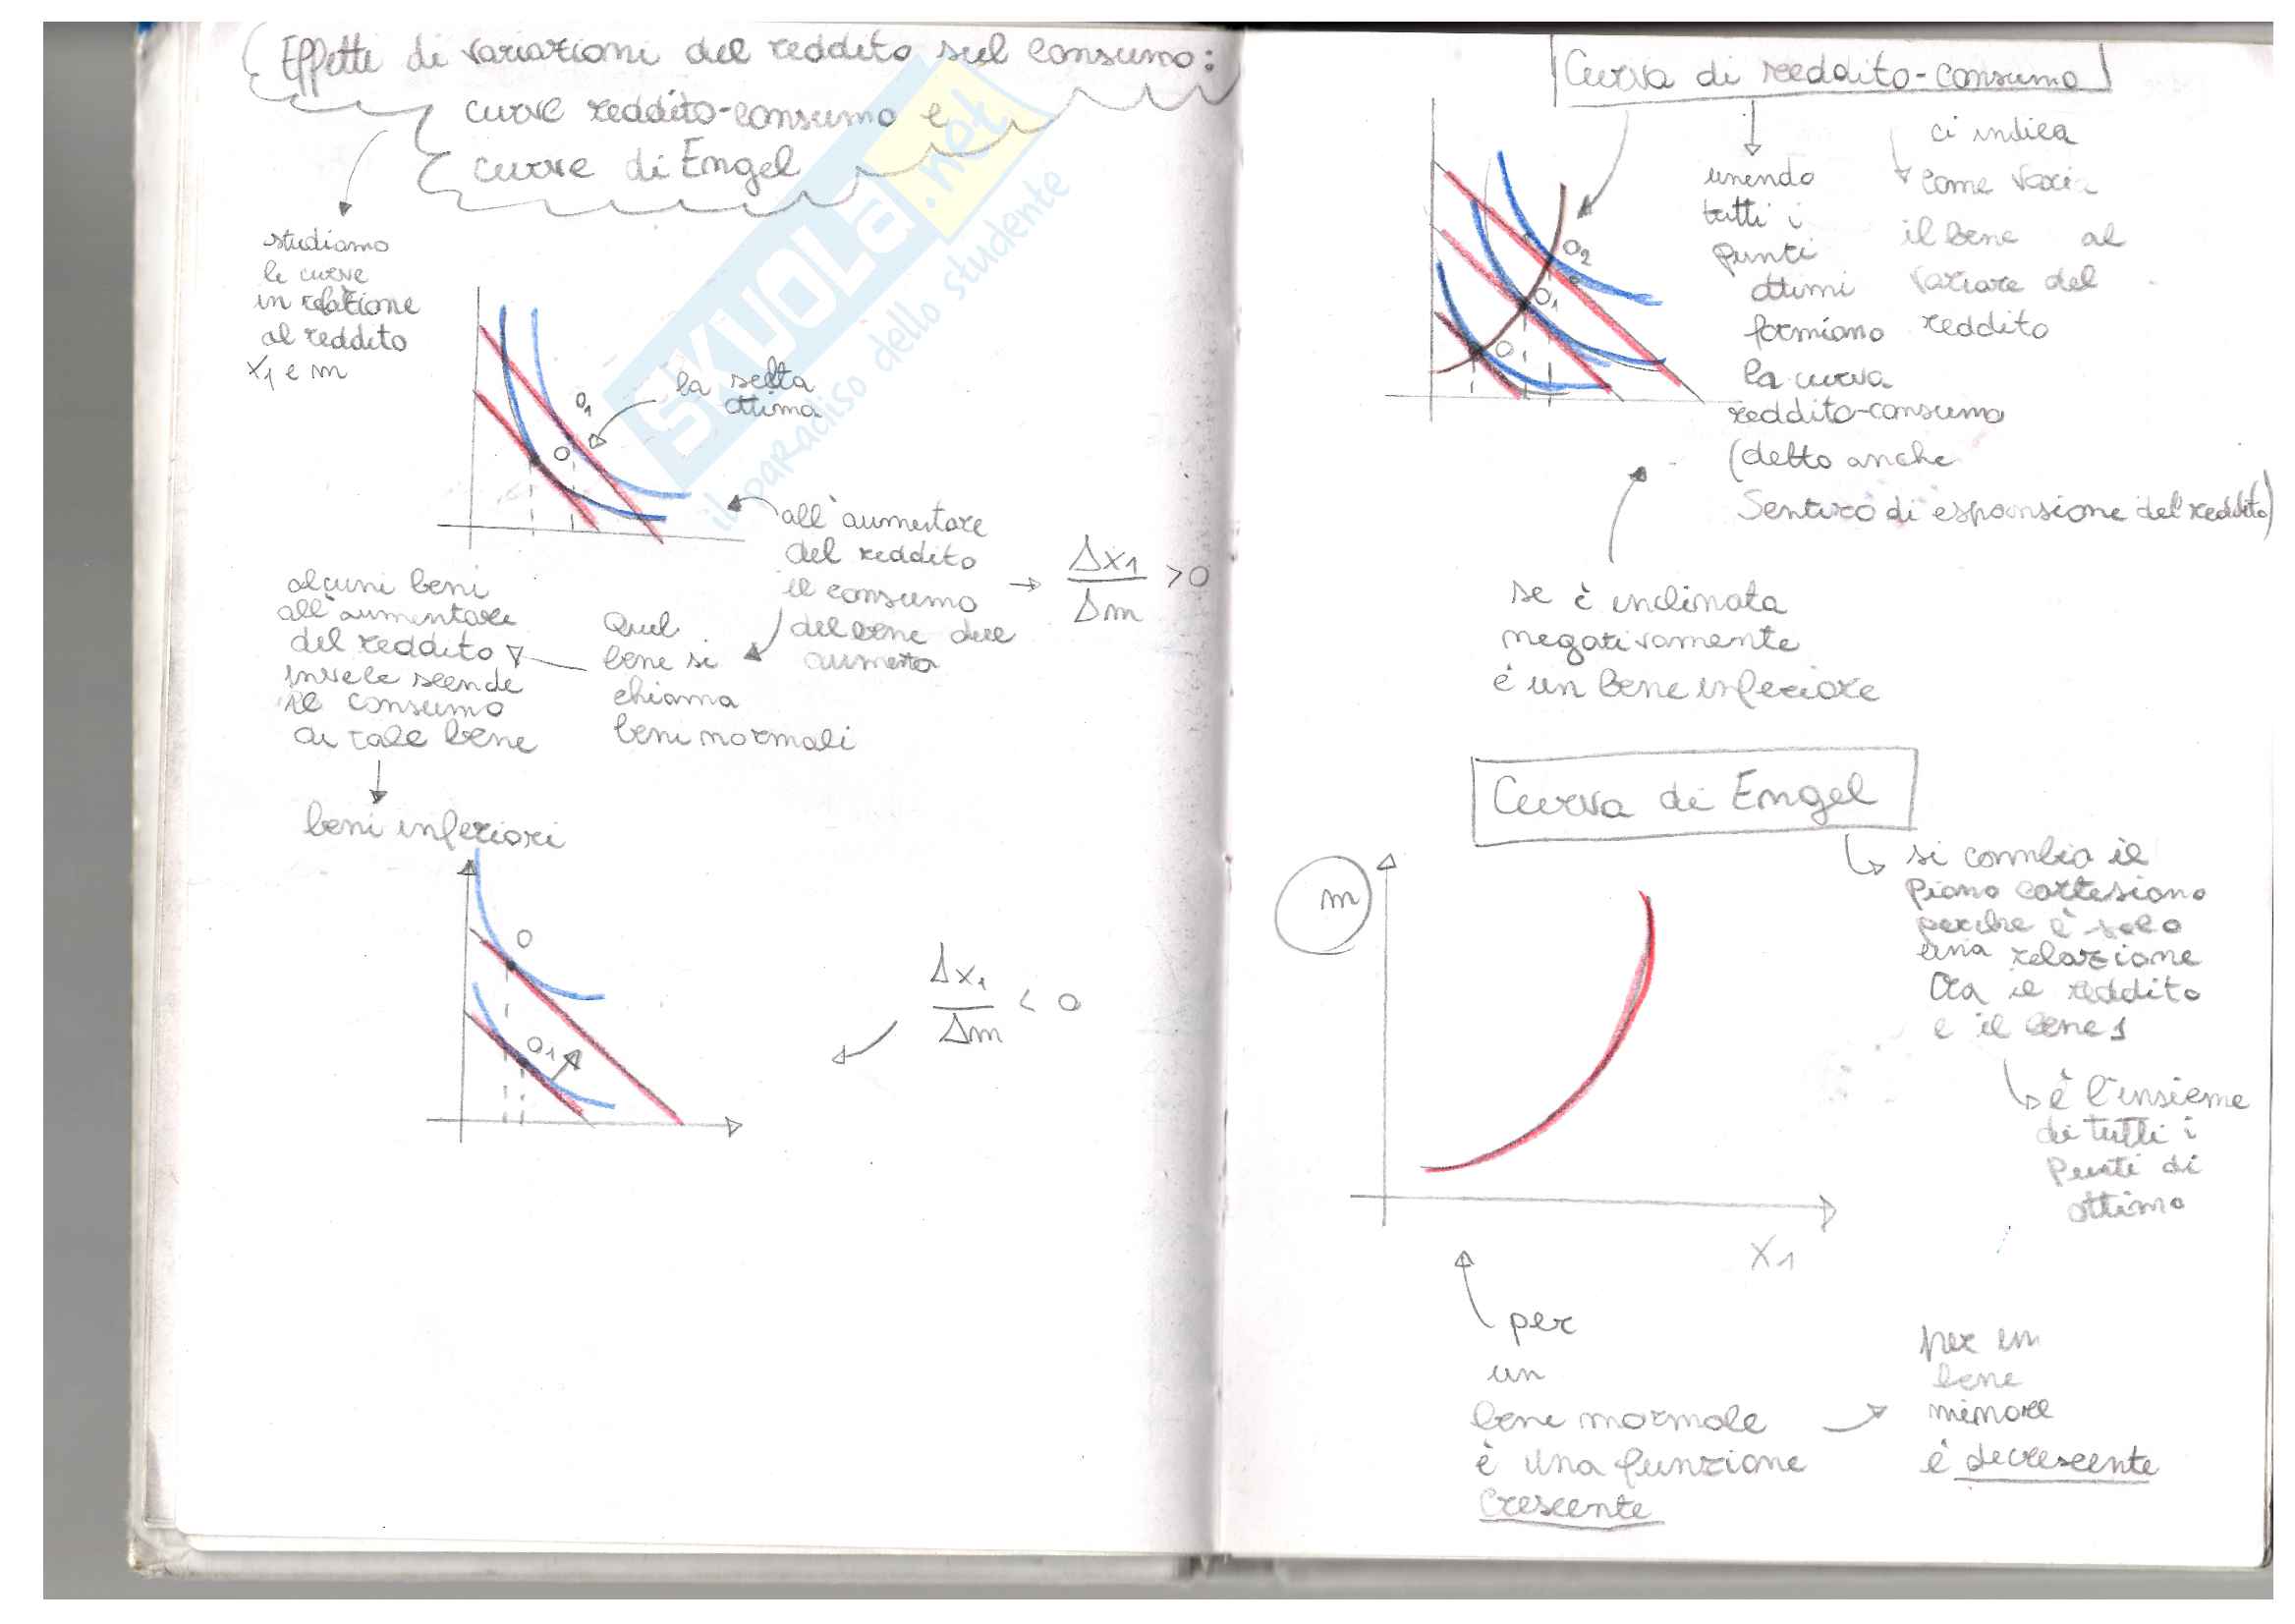 Effetti di variazioni del reddito sul consumo:
curve reddito-consumo e
curve di Engel
studiamo
le curve
in relazione
al reddito
x1 e m
O1
O
la scelta
ottima
all'aumentare
del reddito
il consumo
del bene due
aumenta
→ Δx1/Δm >0
Quel
bene si
chiama
beni normali
alcuni beni
all'aumentare
del reddito
invece scende
il consumo
di tale bene
beni inferiori
O
O1
Δx1/Δm < 0
SKUOLA.net
il paradiso dello studente
Curva di reddito-consumo
O2
O1
O
unendo
tutti i
punti
ottimi
formiamo
la curva
reddito-consumo
(detto anche
Sentiero di espansione del reddito)
ci indica
come varia
il bene al
variare del
reddito
se è inclinata
negativamente
è un bene inferiore
Curva di Engel
si cambia il
piano cartesiano
perchè è solo
una relazione
tra il reddito
e il bene 1
è l'insieme
di tutti i
punti di
ottimo
m
x1
per
un
bene normale
è una funzione
crescente
per un
bene
minore
è decrescente